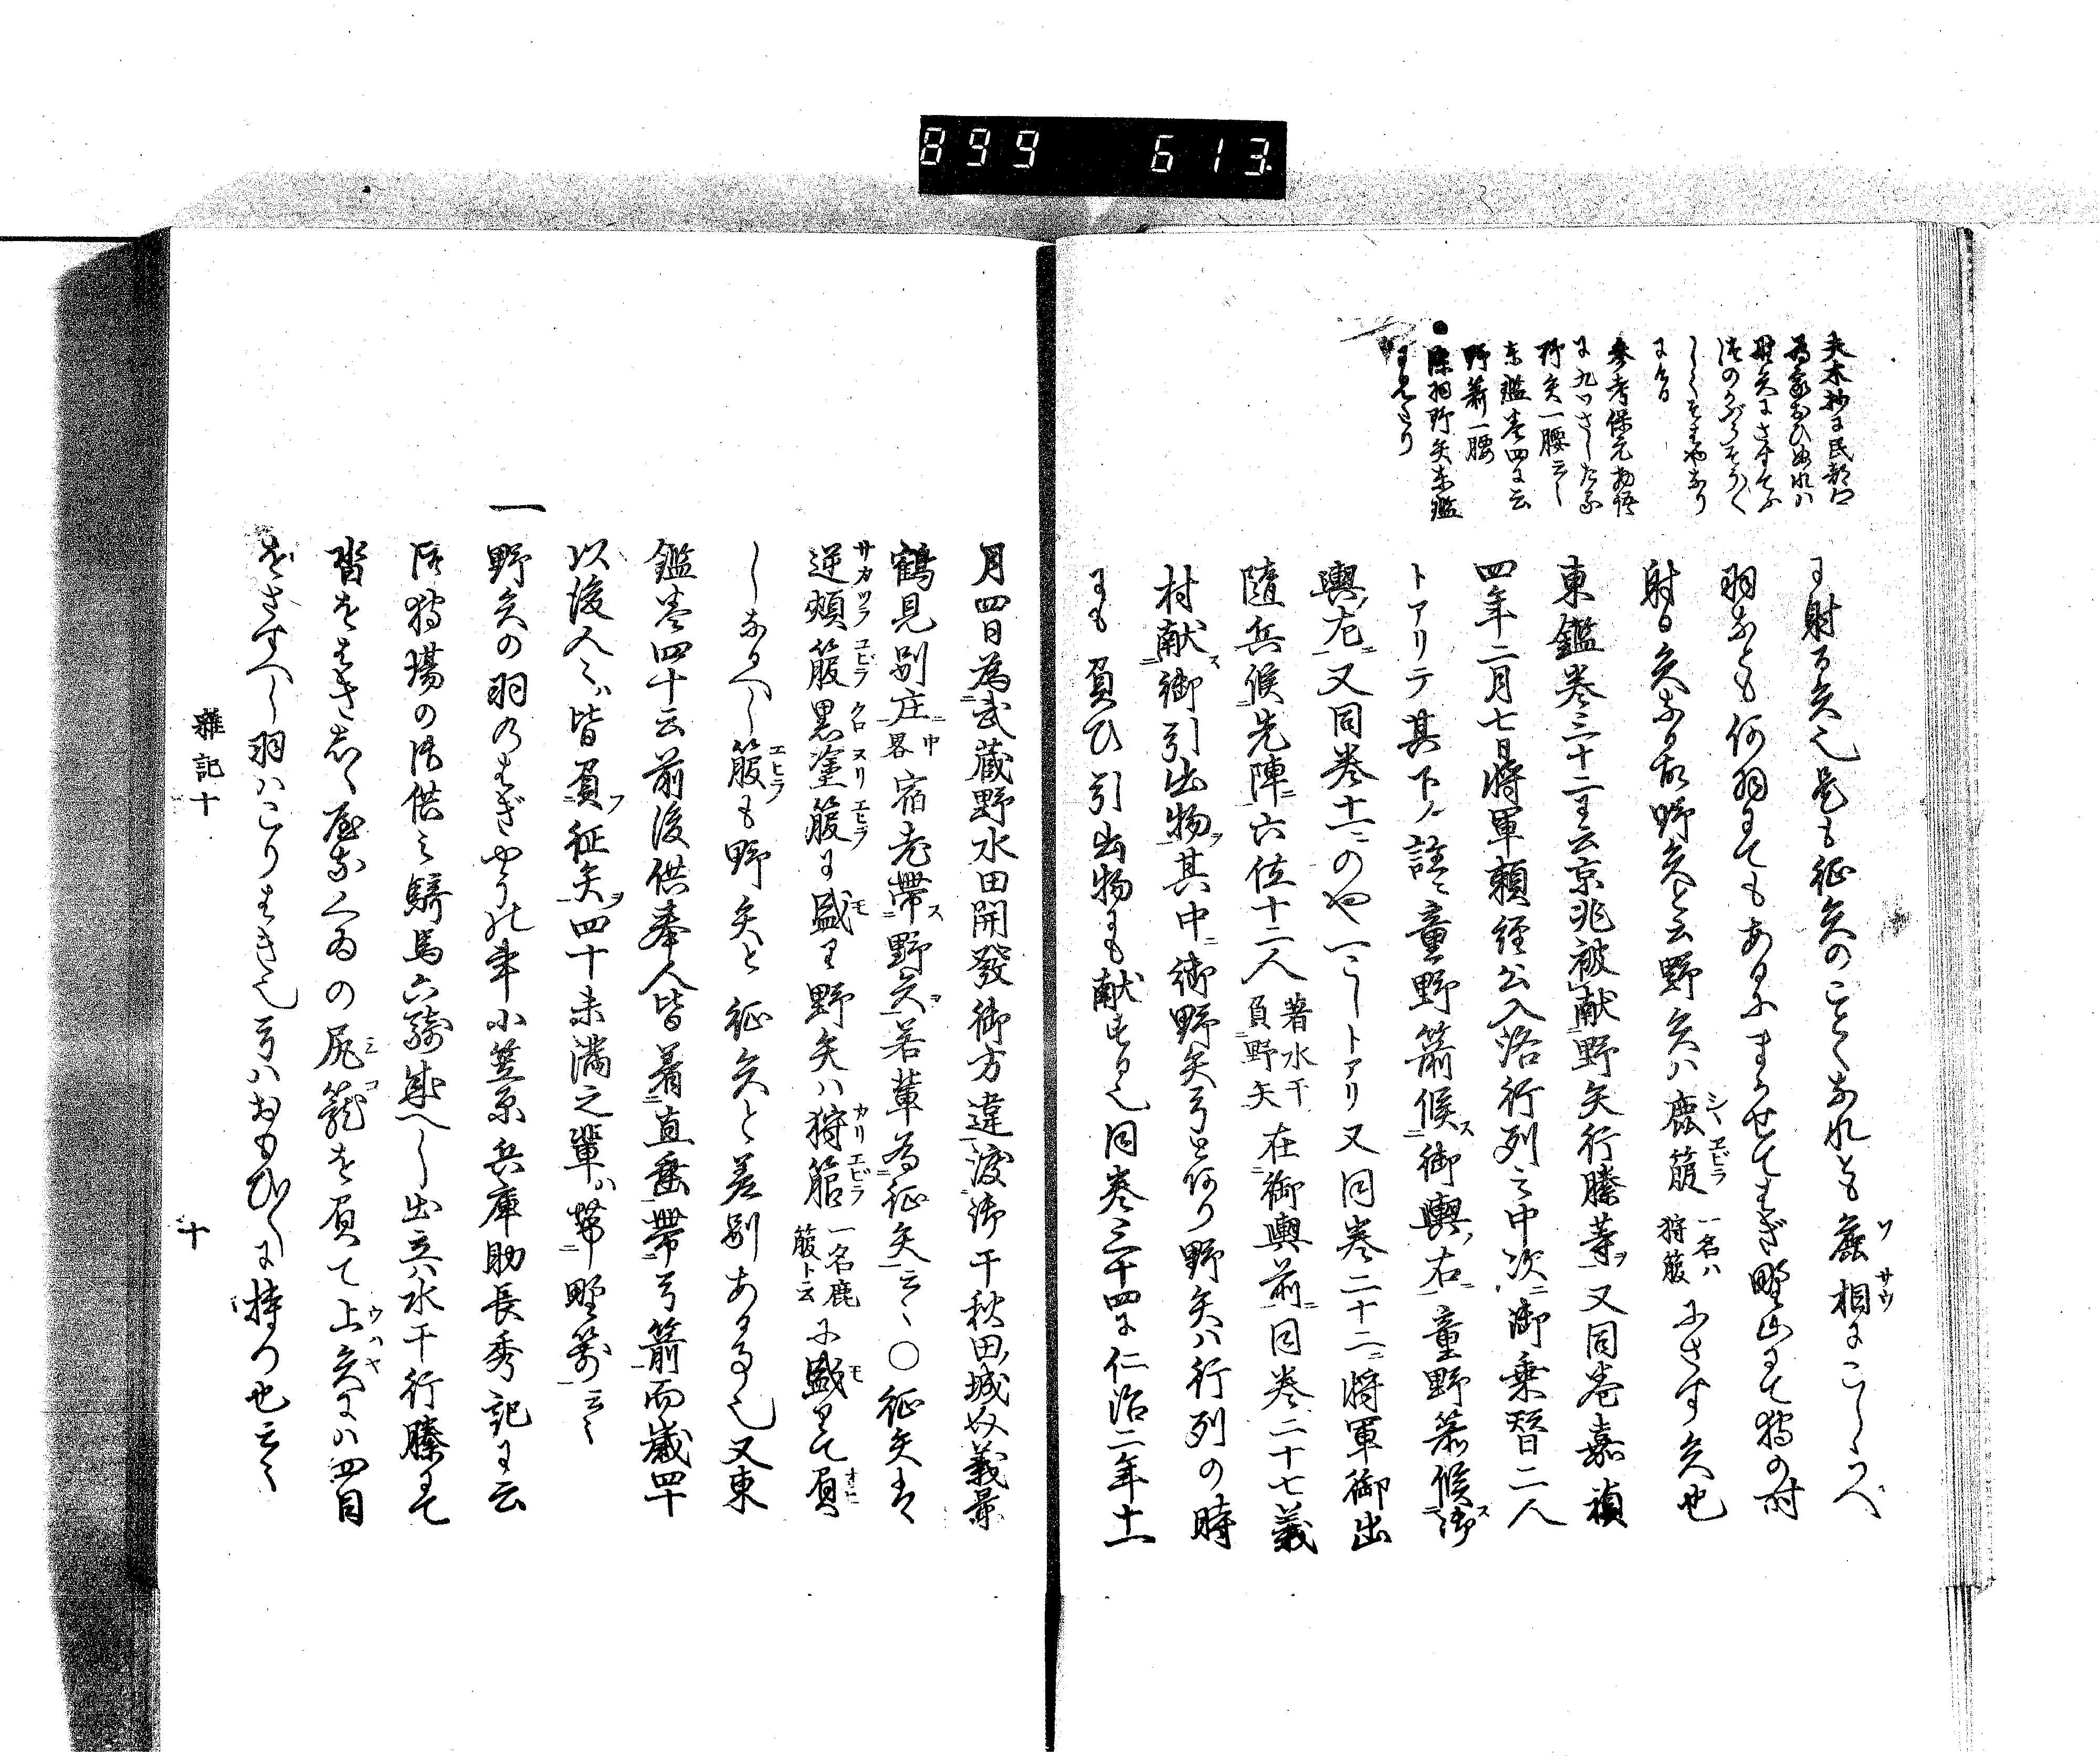 899 613
夫木抄ニ民部卿
為家おひぬれハ
野矢にさすてふ
参考保元物語
に九ツさしたる
野矢一腰云々
東鑑巻四に云
野箭一腰
染羽野矢東鑑
に見えたり
に射る矢也是も征矢のことくなれとも麁相にこしらへ
羽なとも何羽にてもあるにまかせてはぎ野山にて狩の时
射る矢なる故野矢と云野矢ハ鹿箙一名ハ狩箙にさす矢也
東鑑巻三十二ニ云京兆被献野矢行縢等又同巻嘉禎
四年二月七日将軍頼経公入洛行列之中次御乗替二人
トアリテ其下ノ註ニ童野箭候御輿右童野箭候御
輿左又同巻十二ニのや一こしトアリ又同巻二十二ニ将軍御出
随兵候先陣六位十二人著水干負野矢在御輿前同巻二十七義
村献御引出物其中御野矢弓と何り野矢ハ行列の時
にも負ひ引出物にも献する也同巻三十四に仁治二年十一
月四日為武蔵野水田開發御方違渡御于秋田城奴義景
鶴見別庄中畧宿老帯野矢若輩為征矢云々〇征矢ハ
逆頬箙黒塗箙に盛り野矢ハ狩箙一名鹿箙ト云に盛りて負
しなるへし箙も野矢と征矢と差別あるなり又東
鑑巻四十云前後供奉人皆着直垂帯弓箭而歳四十
以後人々ハ皆負征矢四十未満之輩ハ帯野箭云々
一野矢の羽のはぎやうの事小笠原兵庫助長秀記に云
御狩場の御供之騎馬六騎成へし出立ハ水干行縢にて
沓をはき志こ屋なくゐの尻籠を負て上矢にハ四目
をさすへし羽ハこりはき也弓ハおもひ〱に持つ也云々
雑記十
十